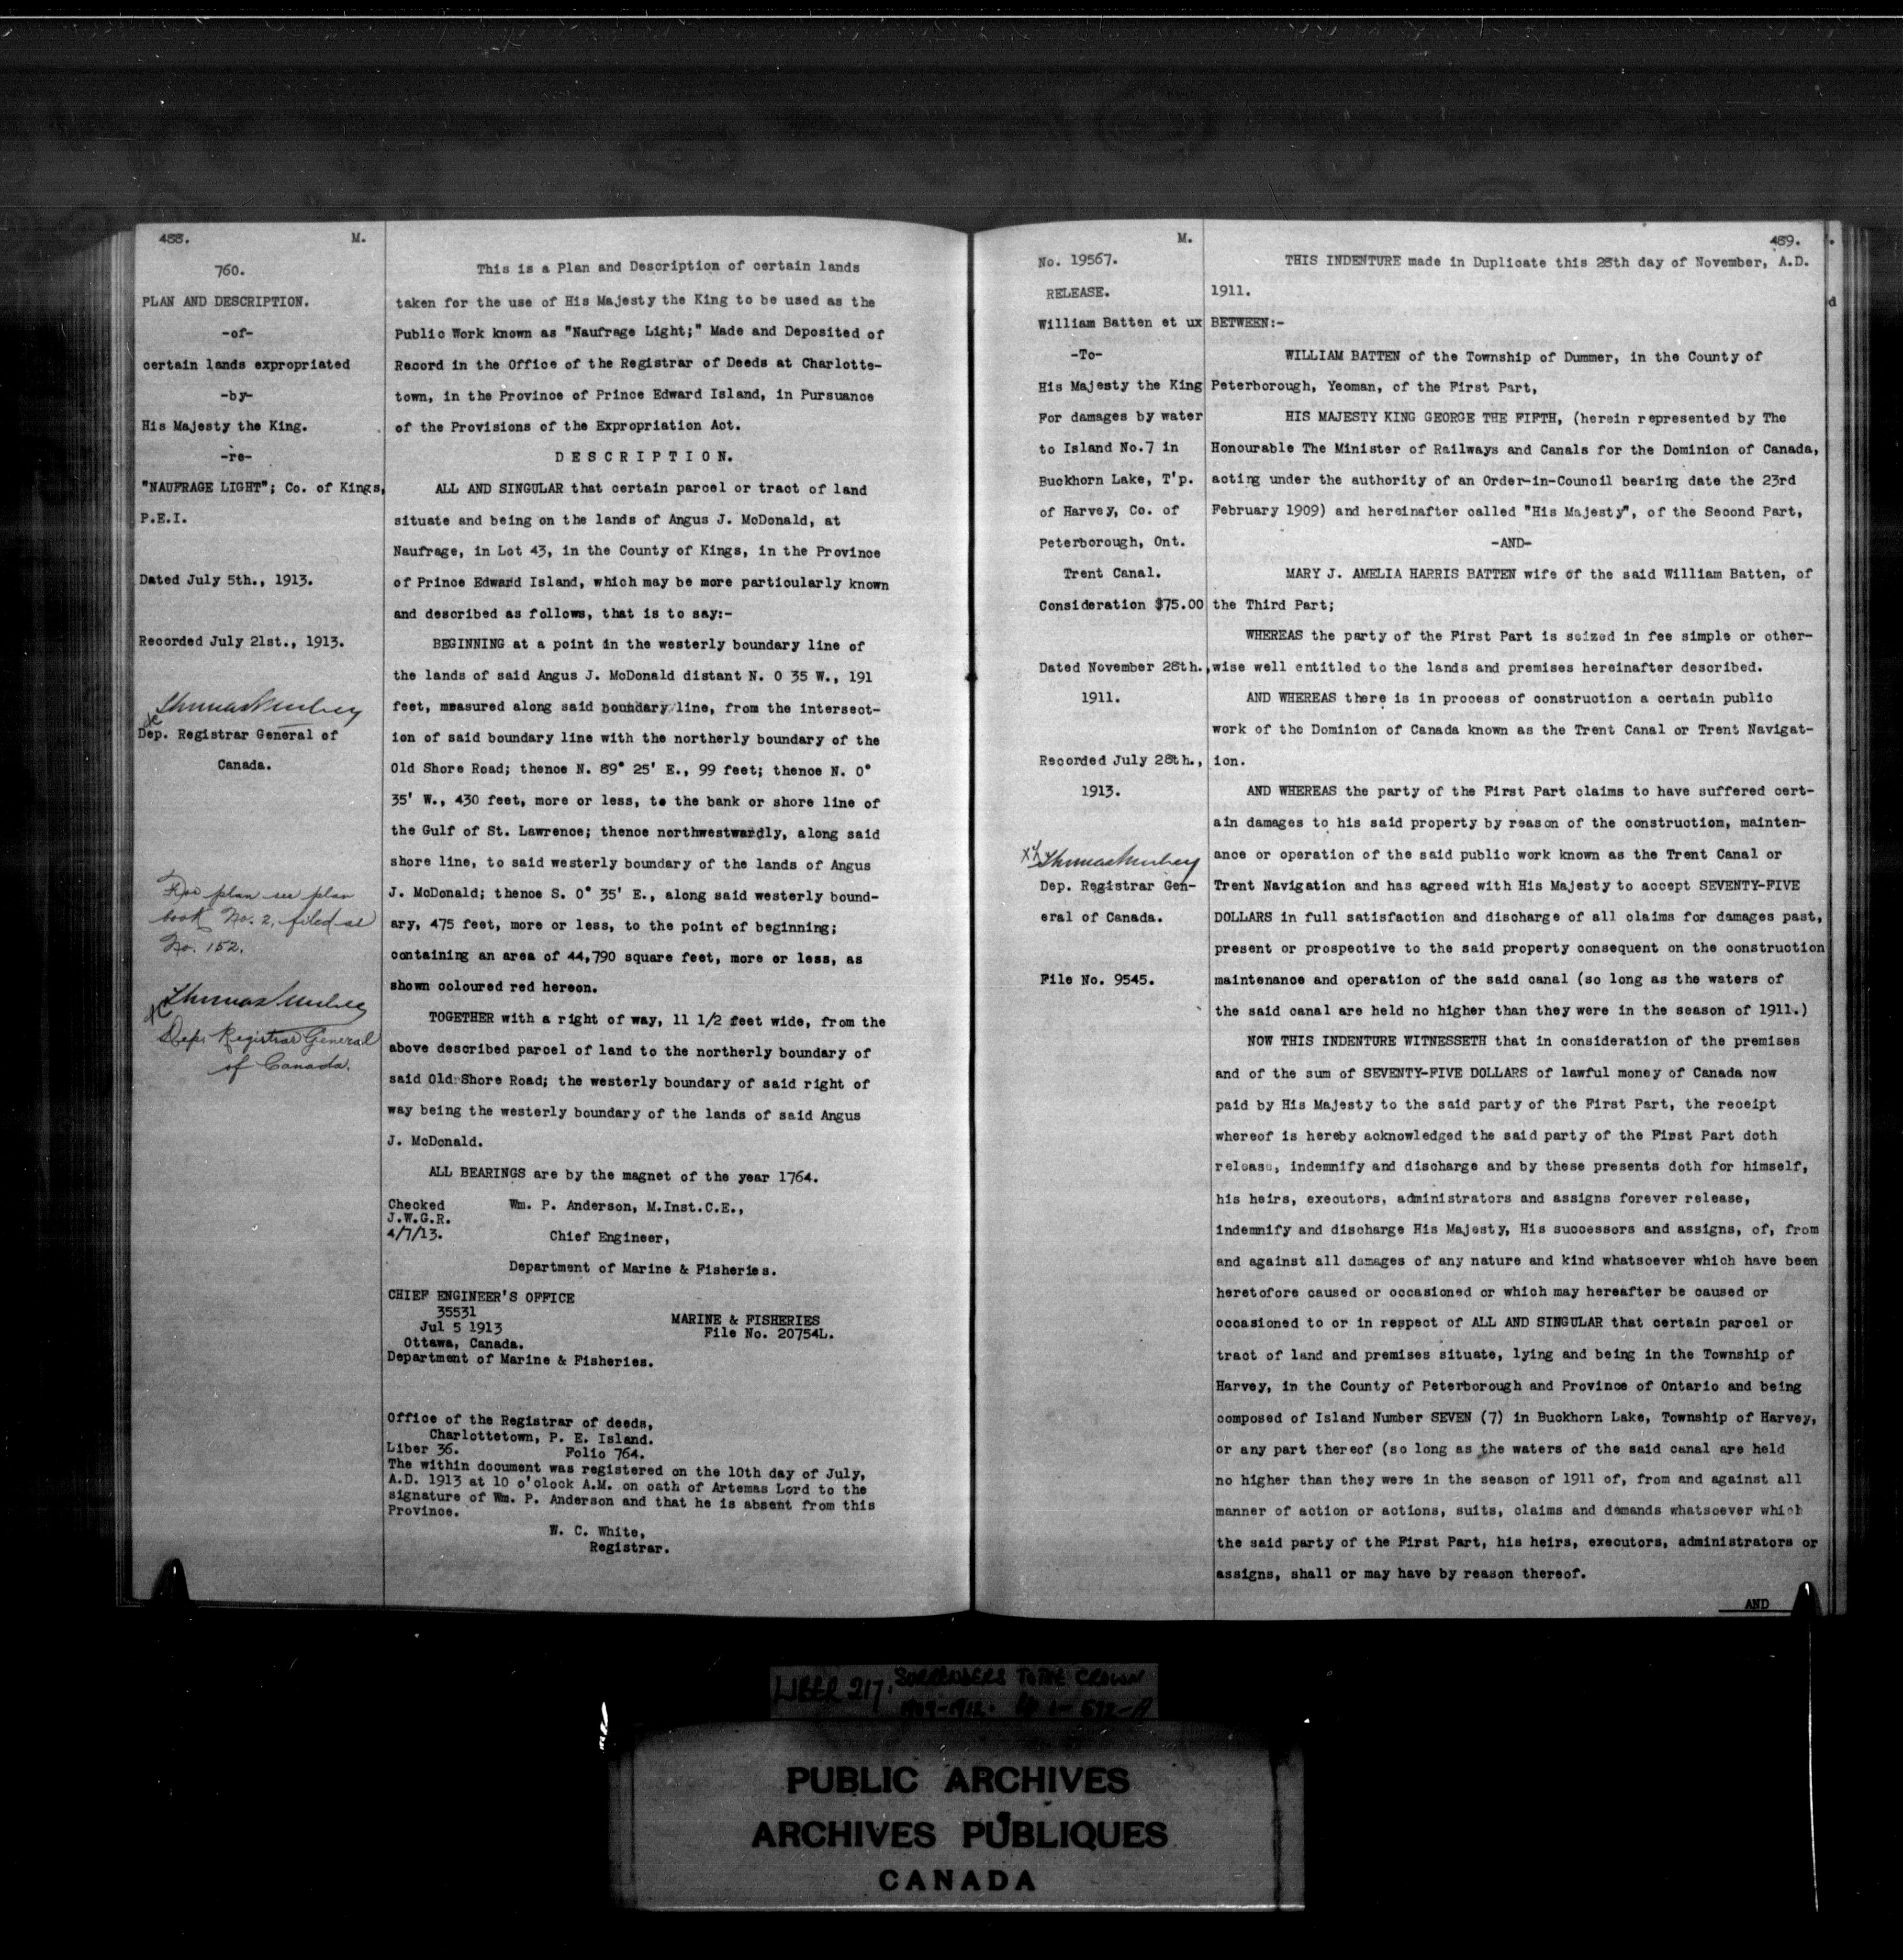 488. M.
760.
PLAN AND DESCRIPTION.
-of-
certain lands expropriated
-by-
His Majesty the King.
-re-
"NAUFRAGE LIGHT"; Co. of Kings,
P.E.I.
Dated July 5th., 1913.
Recorded July 21st., 1913.
Dep. Registrar General of
Canada.
For plan see plan
book No. 2, filed as
No. 152.
Dep. Registrar General
of Canada.
This is a Plan and Description of certain lands
taken for the use of His Majesty the King to be used as the
Public Work known as "Naufrage Light;" Made and Deposited of
Record in the Office of the Registrar of Deeds at Charlotte-
town, in the Province of Prince Edward Island, in Pursuance
of the Provisions of the Expropriation Act.
D E S C R I P T I O N.
ALL AND SINGULAR that certain parcel or tract of land
situate and being on the lands of Angus J. McDonald, at
Naufrage, in Lot 43, in the County of Kings, in the Province
of Prince Edward Island, which may be more particularly known
and described as follows, that is to say:-
BEGINNING at a point in the westerly boundary line of
the lands of said Angus J. McDonald distant N. 0 35 W., 191
feet, measured along said boundary line, from the intersect-
ion of said boundary line with the northerly boundary of the
Old Shore Road; thence N. 89° 25' E., 99 feet; thence N. 0°
35' W., 430 feet, more or less, to the bank or shore line of
the Gulf of St. Lawrence; thence northwestwardly, along said
shore line, to said westerly boundary of the lands of Angus
J. McDonald; thence S. 0° 35' E., along said westerly bound-
ary, 475 feet, more or less, to the point of beginning;
containing an area of 44,790 square feet, more or less, as
shown coloured red hereon.
TOGETHER with a right of way, 11 1/2 feet wide, from the
above described parcel of land to the northerly boundary of
said Old Shore Road; the westerly boundary of said right of
way being the westerly boundary of the lands of said Angus
J. McDonald.
ALL BEARINGS are by the magnet of the year 1764.
Checked Wm. P. Anderson, M.Inst.C.E.,
J.W.G.R.
4/7/13. Chief Engineer,
Department of Marine & Fisheries.
CHIEF ENGINEER'S OFFICE
35531 MARINE & FISHERIES
Jul 5 1913 File No. 20754L.
Ottawa, Canada.
Department of Marine & Fisheries.
Office of the Registrar of deeds,
Charlottetown, P. E. Island.
Liber 36. Folio 764.
The within document was registered on the 10th day of July,
A.D. 1913 at 10 o'clock A.M. on oath of Artemas Lord to the
signature of Wm. P. Anderson and that he is absent from this
Province.
W. C. White,
Registrar.
M. 489.
No. 19567.
RELEASE.
William Batten et ux
-To-
His Majesty the King
For damages by water
to Island No.7 in
Buckhorn Lake, T'p.
of Harvey, Co. of
Peterborough, Ont.
Trent Canal.
Consideration $75.00
Dated November 28th.,
1911.
Recorded July 28th.,
1913.
Dep. Registrar Gen-
eral of Canada.
File No. 9545.
THIS INDENTURE made in Duplicate this 28th day of November, A.D.
1911.
BETWEEN:-
WILLIAM BATTEN of the Township of Dummer, in the County of
Peterborough, Yeoman, of the First Part,
HIS MAJESTY KING GEORGE THE FIFTH, (herein represented by The
Honourable The Minister of Railways and Canals for the Dominion of Canada,
acting under the authority of an Order-in-Council bearing date the 23rd
February 1909) and hereinafter called "His Majesty", of the Second Part,
-AND-
MARY J. AMELIA HARRIS BATTEN wife of the said William Batten, of
the Third Part;
WHEREAS the party of the First Part is seized in fee simple or other-
wise well entitled to the lands and premises hereinafter described.
AND WHEREAS there is in process of construction a certain public
work of the Dominion of Canada known as the Trent Canal or Trent Navigat-
ion.
AND WHEREAS the party of the First Part claims to have suffered cert-
ain damages to his said property by reason of the construction, mainten-
ance or operation of the said public work known as the Trent Canal or
Trent Navigation and has agreed with His Majesty to accept SEVENTY-FIVE
DOLLARS in full satisfaction and discharge of all claims for damages past,
present or prospective to the said property consequent on the construction
maintenance and operation of the said canal (so long as the waters of
the said canal are held no higher than they were in the season of 1911.)
NOW THIS INDENTURE WITNESSETH that in consideration of the premises
and of the sum of SEVENTY-FIVE DOLLARS of lawful money of Canada now
paid by His Majesty to the said party of the First Part, the receipt
whereof is hereby acknowledged the said party of the First Part doth
release, indemnify and discharge and by these presents doth for himself,
his heirs, executors, administrators and assigns forever release,
indemnify and discharge His Majesty, His successors and assigns, of, from
and against all damages of any nature and kind whatsoever which have been
heretofore caused or occasioned or which may hereafter be caused or
occasioned to or in respect of ALL AND SINGULAR that certain parcel or
tract of land and premises situate, lying and being in the Township of
Harvey, in the County of Peterborough and Province of Ontario and being
composed of Island Number SEVEN (7) in Buckhorn Lake, Township of Harvey,
or any part thereof (so long as the waters of the said canal are held
no higher than they were in the season of 1911 of, from and against all
manner of action or actions, suits, claims and demands whatsoever which
the said party of the First Part, his heirs, executors, administrators or
assigns, shall or may have by reason thereof.
AND
LIBER 217. SURRENDERS TO THE CROWN
PUBLIC ARCHIVES
ARCHIVES PUBLIQUES
CANADA